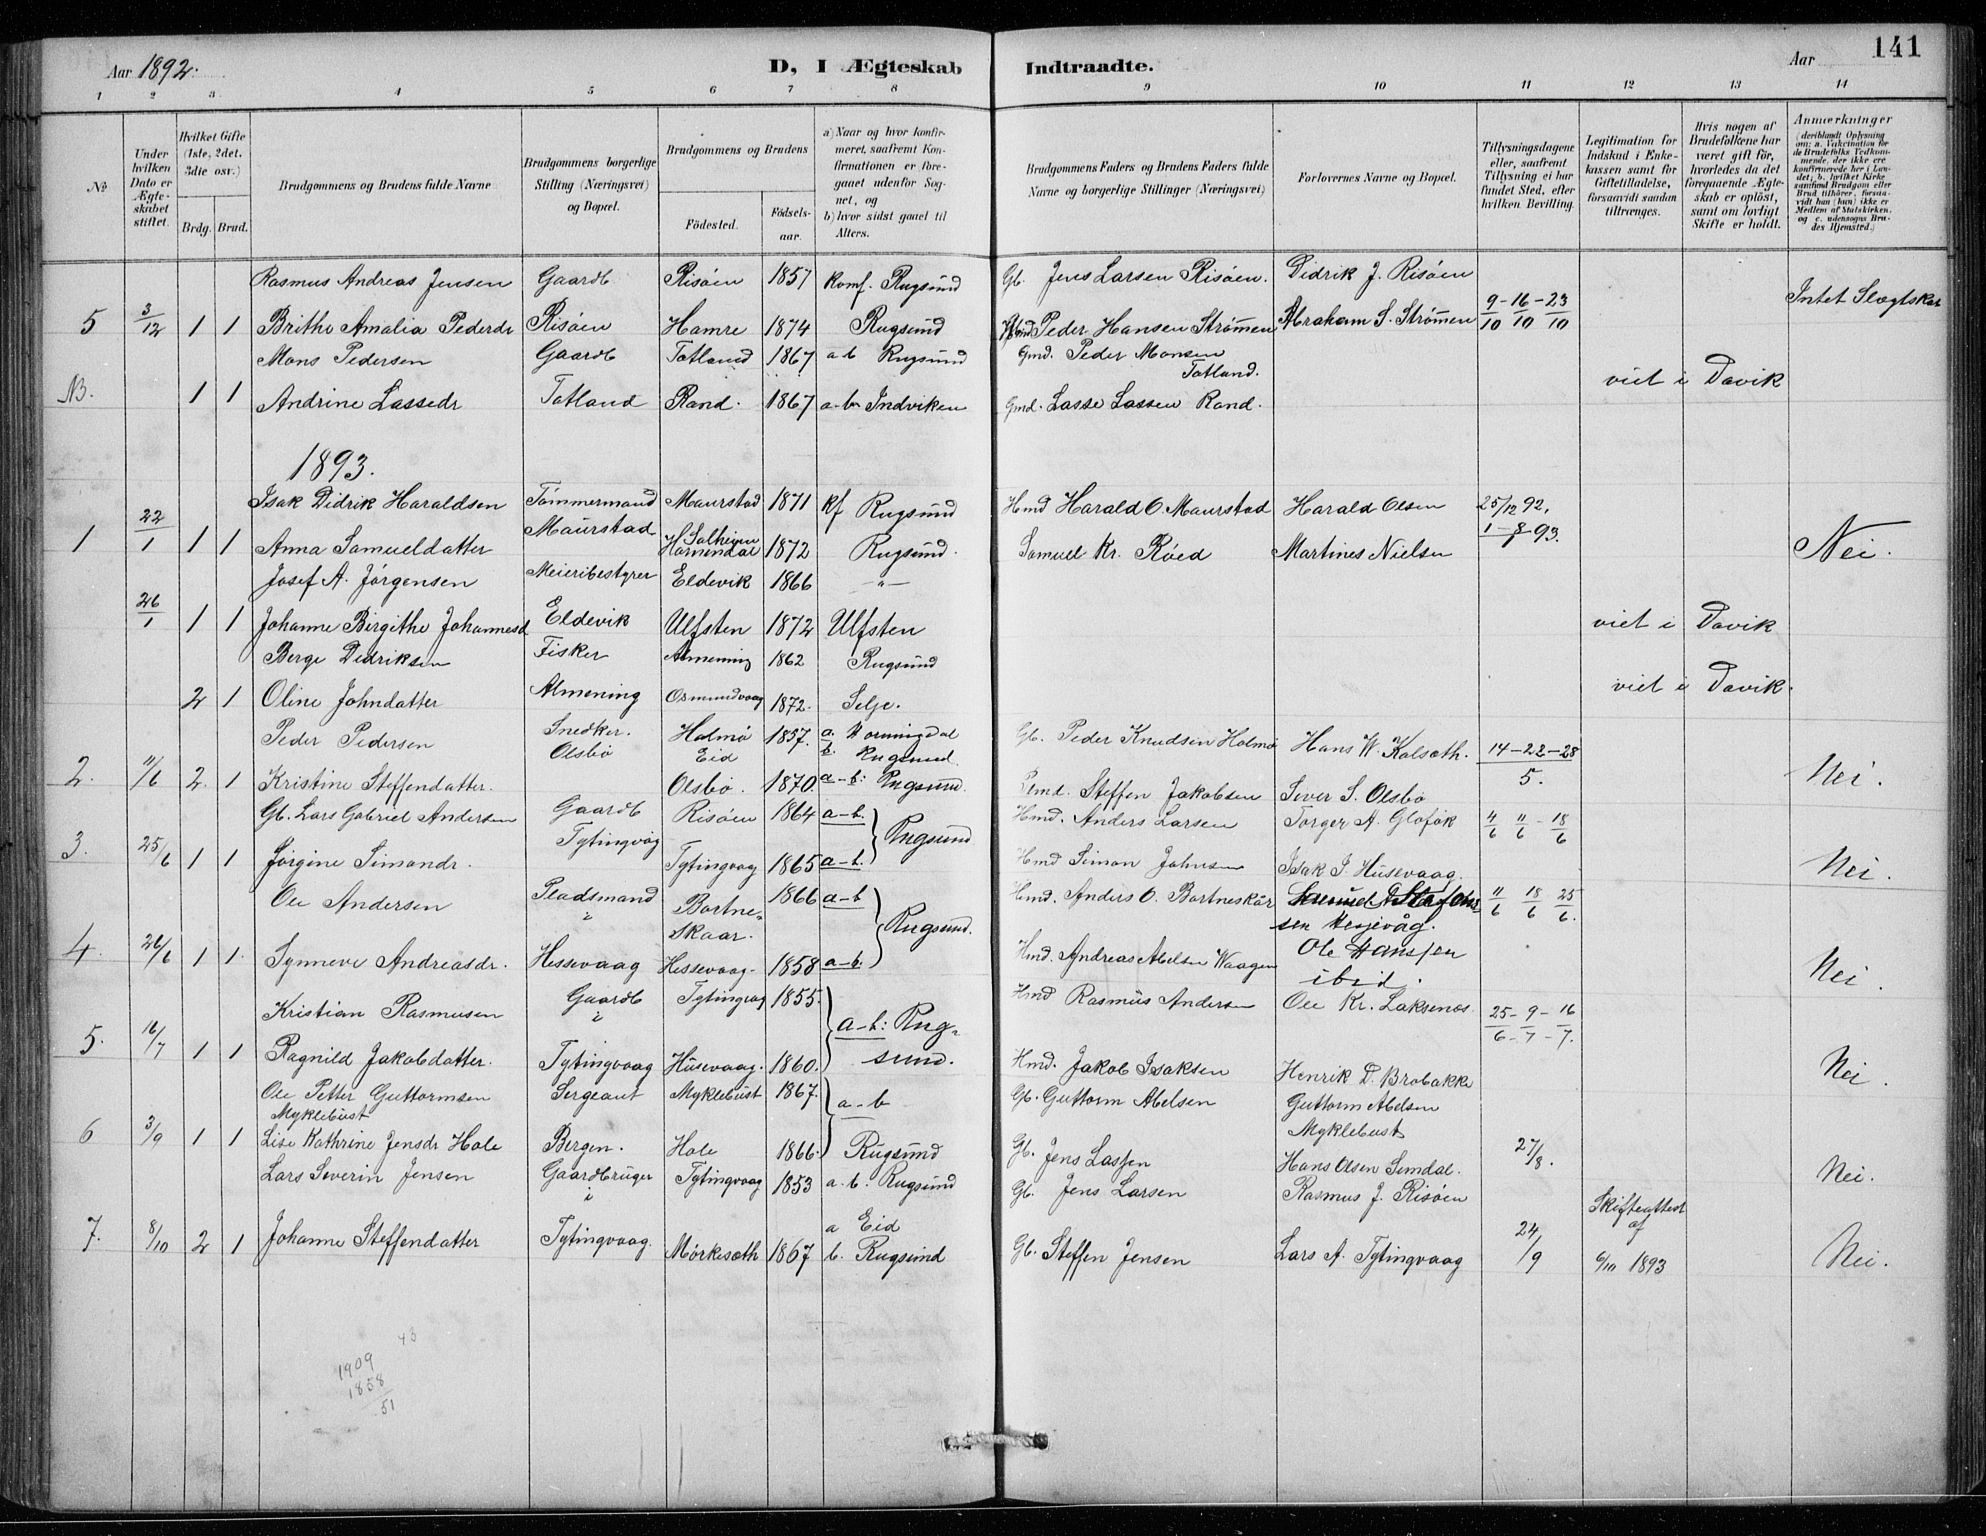 Aar 1892.
D, I Ægteskab Indtraadte.
Aar
141
1 2 3 4 5 6 7 8 9 10 11 12 13 14
№
Under hvilken Dato er Ægteskabet stiftet.
Hvilket Gifte (1ste, 2det, 3die osv.)
Brdg. Brud.
Brudgommens og Brudens fulde Navne
Brudgommens borgerlige Stilling (Næringsvei) og Bopæl.
Brudgommens og Brudens
Fødested. Fødselsaar.
a) Naar og hvor konfirmeret, saafremt Konfirmationen er foregaaet udenfor Sognet, og
b) hvor sidst gaaet til Alters.
Brudgommens Faders og Brudens Faders fulde Navne og borgerlige Stillinger (Næringsvei)
Forlovernes Navne og Bopæl.
Tillysningsdagene eller, saafremt Tillysning ei har fundet Sted, efter hvilken Bevilling.
Legitimation for Indskud i Enkekassen samt for Giftetilladelse, forsaavidt saadan tiltrænges.
Hvis nogen af Brudefolkene har været gift før, hvorledes da det foregaaende Ægteskab er opløst, samt om lovligt Skifte er holdt.
Anmærkninger (deriblandt Oplysning om: a. Vakcination for de Brudefolks Vedkommende, der ikke ere konfirmerede her i Landet; b. hvilket Kirkesamfund Brudgom eller Brud tilhører, forsaavidt han (hun) ikke er Medlem af Statskirken, og c. udensogns Brudes Hjemsted.)
Rasmus Andreas Jensen Gaardb Risöen 1857 konf. Rugsund Gb. Jens Larsen Risöen. Didrik J. Risöen
5 3/12 1 1 Brithe Amalia Pedersdr Risöen Hamre 1874 Rugsund Peder Hansen Strömmen Abraham S. Strömmen 9-16-23 / 10 10 10 Intet Slægtskab
Mons Pedersen Gaardb Totland 1867 a-b Rugsund Gmd. Peder Monsen Totland.
NB. 1 1 Andrine Lassedr Totland Rand. 1867 a-b Indviken Gmd. Lasse Lassen Rand. viet i Davik
1893.
Isak Didrik Haraldsen Tömmermand Maurstad 1871 kf Rugsund Hmd Harald O. Maurstad Harald Olsen 25/12 92.
1 22/1 1 1 Anna Samueldatter Maurstad Solheim Hornindal 1872 Rugsund. Samuel Kr. Röed Martines Nielsen 1-8/1 93. Nei.
Josef A. Jörgensen Meieribestyrer Eldevik 1866 -"-
26/1 1 1 Johanne Birgithe Johannesd Eldevik Ulfsten 1872 Ulfsten viet i Davik
Berge Didriksen Fisker Almening 1862 Rugsund
2 1 Oline Johndatter Almening Osmundvaag 1872. Selje. viet i Davik.
Peder Pedersen Snedker. Olsbö Holmö Eid 1857. a. Hornindal b. Rugsund. Gb. Peder Knudsen Holmö Hans W. Kalsæth. 14-22-28
2. 11/6 2. 1 Kristine Steffendatter. Olsbö. 1870. a-b: Rugsund. Steffen Jakobsen Siver S. Olsbö 5. Nei.
Gb. Lars Gabriel Andersen Gaardb Risöen 1864 a-b. Hmd. Anders Larsen Torger A. Glofök 4/6 11/6 - 18/6
3. 25/6 1 1 Jörgine Simondr. Tytingvåg Tytingvaag 1865 a-b. Rugsund Hmd Simon Johnsen Isak S. Husevaag. Nei.
Ole Andersen Pladsmand Bortne-Skaar. 1866 a-b Hmd. Anders O. Bortneskår 11/6 18/6 25/6.
4. 26/6 1 1. Synneve Andreasdr. Hessevaag Hessevaag. 1858 a-b. Rugsund. Hmd. Andreas Abelsen Waagen Ole Hanssen ibid. Nei.
Kristian Rasmusen Gaardb i Tytingvaag 1855. Hmd Rasmus Andersen Ole Kr. Laksenæs 25-9-16 / 6-7-7.
5. 16/7 1 1 Ragnild Jakobdatter. Tytingvaag Husevaag. 1860. a-b: Rugsund. Hmd. Jakob Isaksen Henrik D. Brobakke Nei.
Ole Petter Guttormsen Myklebust Sergeant Myklebust 1867. a-b Gb. Guttorm Abelsen Guttorm Abelsen Myklebust
6 3/9 1 1 Lise Kathrine Jensdr Hole Bergen. Hole 1866. Rugsund Gb. Jens Lassen Hans Olsen Simdal. 27/8. Nei.
Lars Severin Jensen Gaardbruger i Tytingvaag 1853 a-b. Rugsund Gb. Jens Larsen Rasmus J. Risöen Skifteattest af
7. 8/10 2 1 Johanne Steffendatter Tytingvaag. Mörkesæth 1867 a Eid b. Rugsund Gb. Steffen Jensen Lars A. Tytingvaag 24/9 6/10 1893 Nei.
43
1909
1858
51